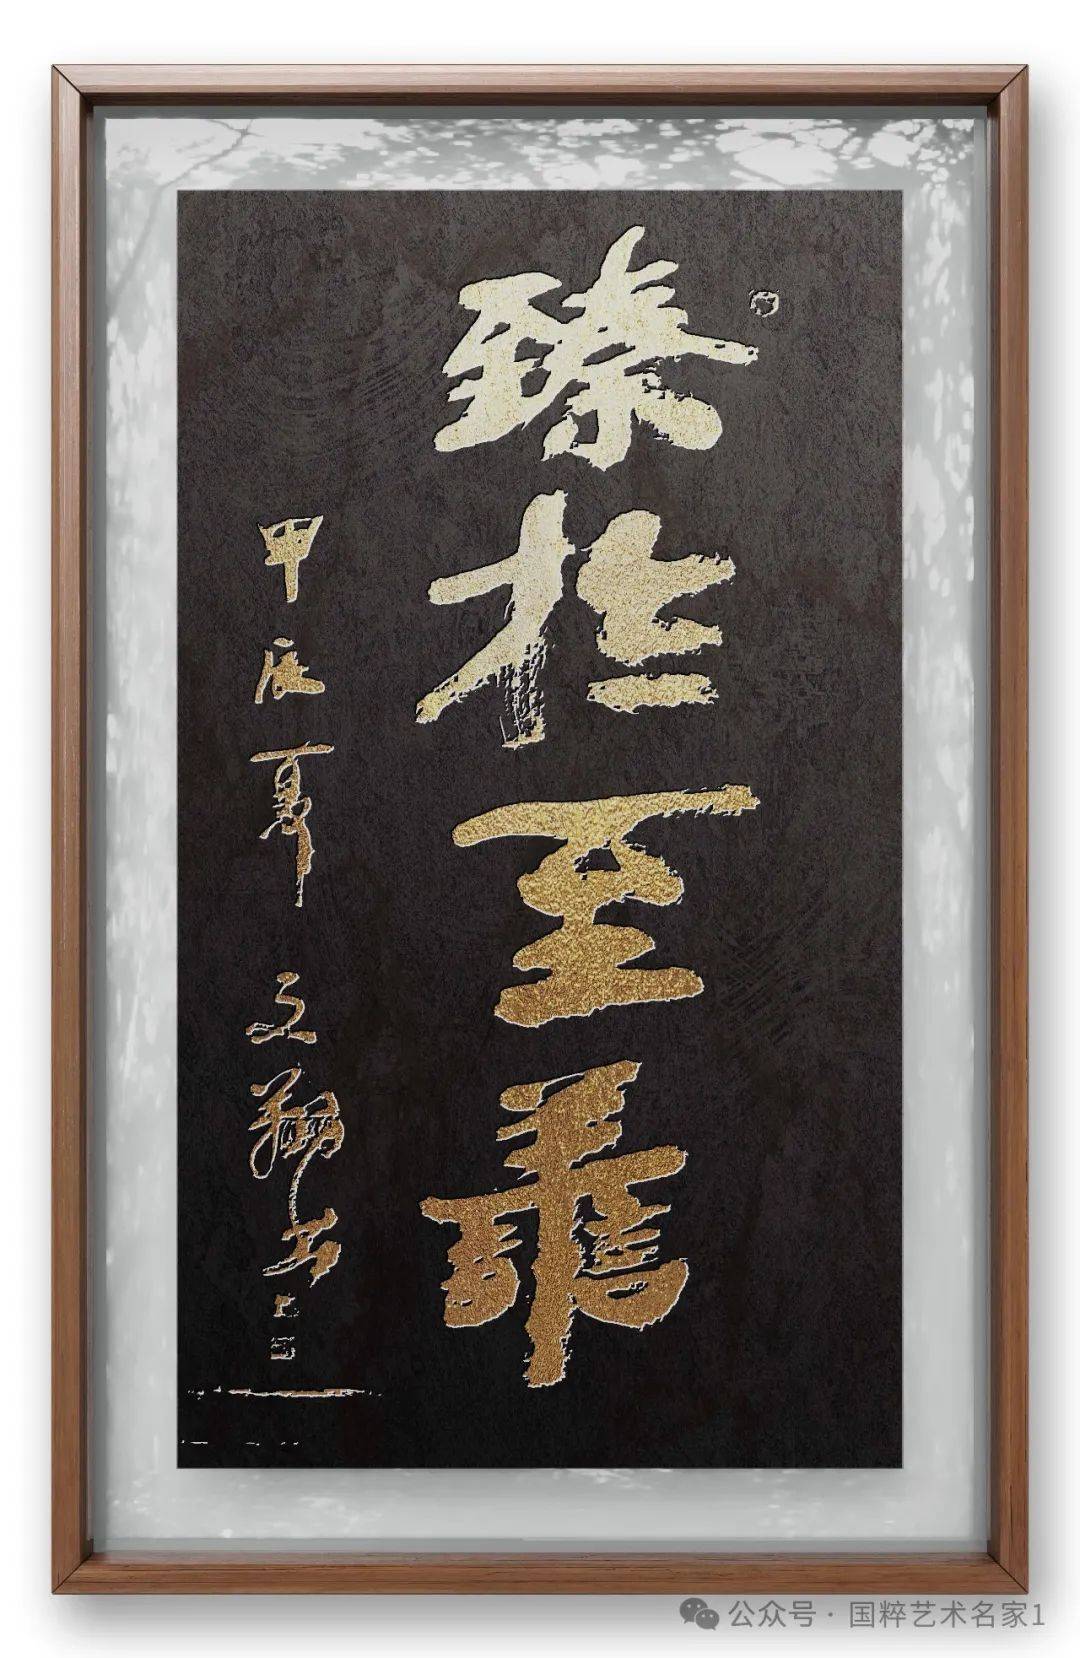 臻於至善
甲辰夏文翔书
公众号·国粹艺术名家1